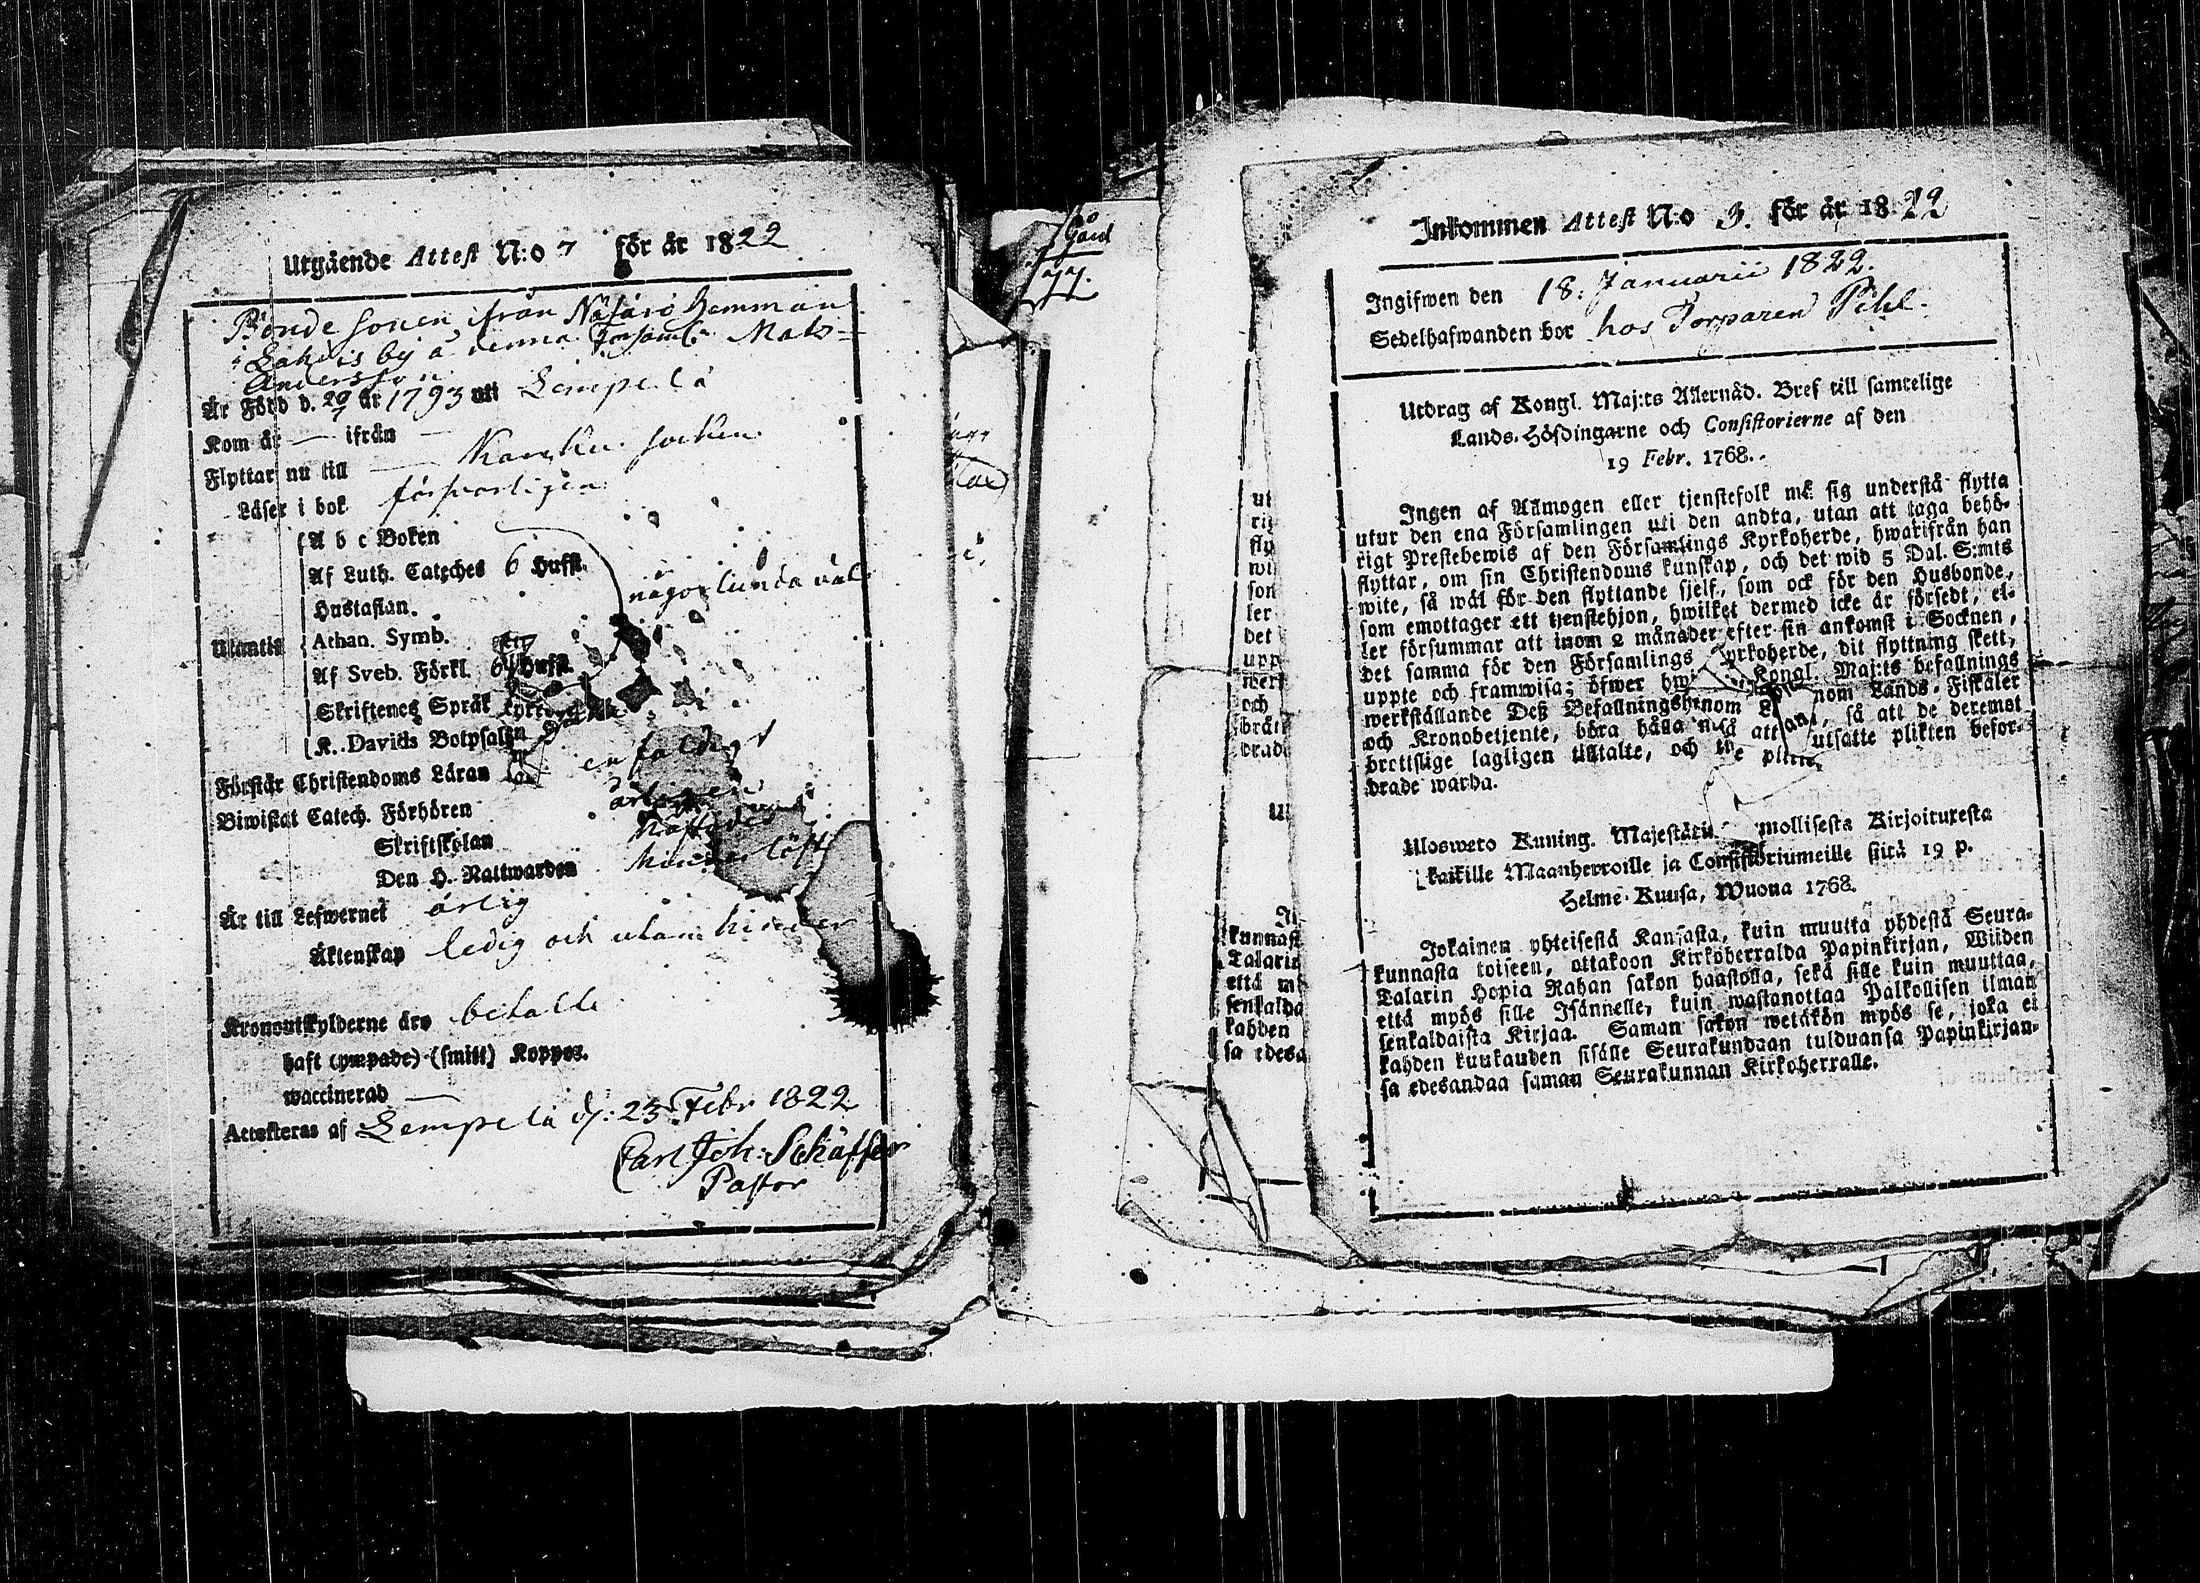 Utgående Attest N:o 7 för år 1822
Bonde sonen ifrån Näsärö Hemman
i Lahdis by å denna Församl: Mats
Andersson
Är Född d. 20/7 år 1793 uti Lempelä
Kom år — ifrån —
Flyttar nu till — Karcku socken
Läser i bok försvarligen
A b c Boken
Af Luth. Cateches 6 Hufst.
någorlunda väl
Hustaflan.
Utantil
Athan. Symb.
Af Sveb. Förkl. 6 Hufst.
Skriftenes Språk
K. Davids Botpsalm
Förstår Christendoms Läran enfaldigt
Biwistat Catech. Förhören årligen
Skriftskolan
Den H. Nattwarden
Är till Lefwernet ärlig
Äktenskap ledig och utan hinder
Kronoutskylderne äro betalde
haft (ympade) (smitt) Koppor.
waccinerad —
Attesteras af Lempelä d: 23 Febr 1822
Carl Joh: Schäffer
Pastor
Gård
77.
Inkommen Attest N:o 3. för år 1822
Ingifwen den 18. Januarii 1822.
Sedelhafwanden bor hos Torparen Pihl.
Utdrag af Kongl. Maj:ts Allernåd. Bref till samtelige
Lands-Höfdingarne och Consistorierne af den
19 Febr. 1768.
Ingen af Allmogen eller tjenstefolk må sig understå flytta
utur den ena Församlingen uti den andra, utan att taga behö-
rigt Prestebewis af den Församlings Kyrkoherde, hwarifrån han
flyttar, om sin Christendoms kunskap, och det wid 5 Dal. S:mts
wite, så wäl för den flyttande sjelf, som ock för den Husbonde,
som emottager ett tjenstehjon, hwilket dermed icke är försedt, el-
ler försummar att inom 2 månader efter sin ankomst i Socknen,
det samma för den Församlings Kyrkoherde, dit flyttning skett,
uppte och framwisa; öfwer Kongl. Maj:ts befallnings
werkställande Deß Befallningshafwande nom Lands-Fiskaler
och Kronobetjente, böra hålla så att så att de deremot
brottslige lagligen tilltalte, och utsatte plikten befor-
drade warda.
Ulosweto Kuning. Majestätin Armollisesta Kirjoituxesta
kaikille Maanherroille ja Consistoriumeille siitä 19 p.
Helme-Kuusa, Wuona 1768.
Jokainen yhteisestä Kansasta, kuin muutta yhdestä Seura-
kunnasta toiseen, ottakoon Kirkoherralda Papinkirjan, Wiiden
Talarin Hopia Rahan sakon haastolla, sekä sille kuin muuttaa,
että myös sille Isännelle, kuin wastanottaa Palkollisen ilman
senkaldaista Kirjaa. Saman sakon wetäkön myös se, joka ei
kahden kuukauden sisälle Seurakundaan tulduansa Papinkirjan-
sa edesandaa saman Seurakunnan Kirkoherralle.